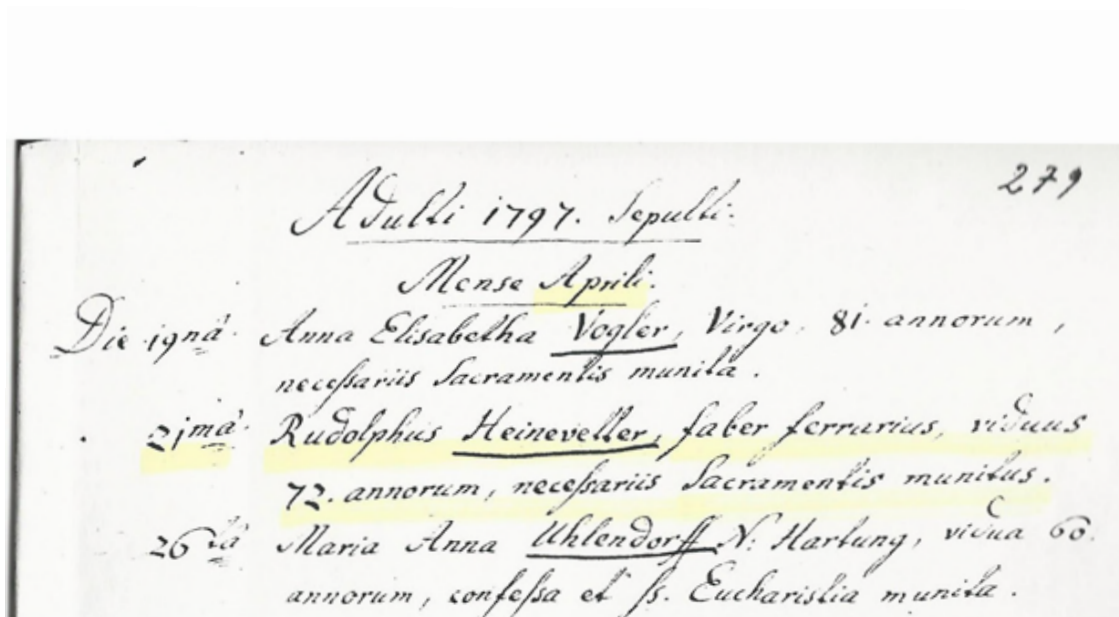 279
Adulti 1797. Sepulti.
Mense Aprili.
Die 19nâ. Anna Elisabetha Vogler, Virgo, 81. annorum,
necessariis Sacramentis munita.
21mâ. Rudolphus Heineveller, faber ferrarius, viduus
72. annorum, necessariis Sacramentis munitus.
26tâ Maria Anna Uhlendorff N: Hartung, vidua 60.
annorum, confessa et ss. Eucharistia munita.